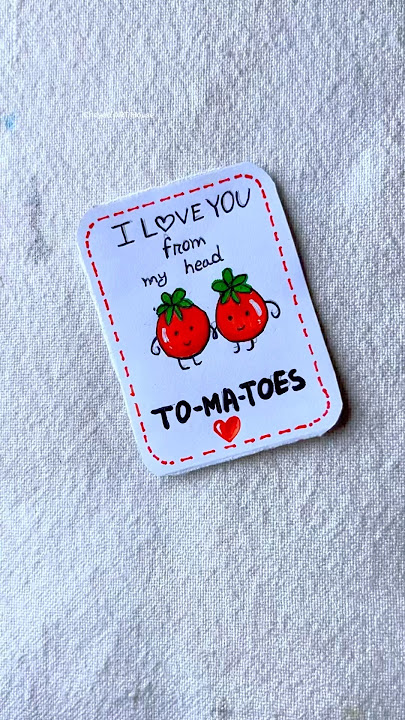 I LOVE YOU
from
my head
TO-MA-TOES